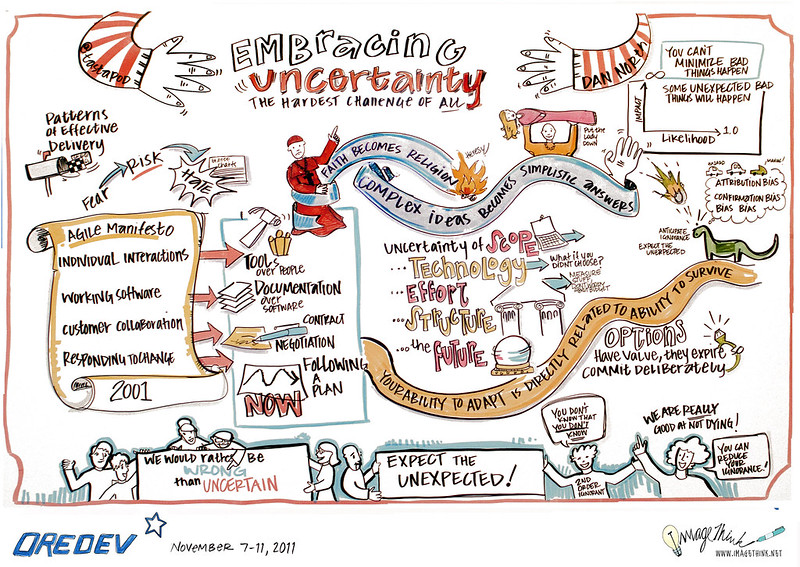 @tastapod
EMBracing
uncertainty
THE HARDEST CHALLENGE OF ALL
DAN NORTH
YOU CAN'T
MINIMIZE BAD
THINGS HAPPEN
∞
SOME UNEXPECTED BAD
THINGS WILL HAPPEN
IMPACT
Likelihood
1.0
Patterns
of Effective
Delivery
Fear
RISK
HATE
FAITH BECOMES RELIGION
HERESY!
COMPLEX IDEAS BECOMES SIMPLISTIC ANSWERS
Put the
Lady
Down
ATTRIBUTION BIAS
CONFIRMATION BIAS
BIAS BIAS
ANTICIPATE
IGNORANCE
EXPECT THE
UNEXPECTED
Agile Manifesto
INDIVIDUAL INTERACTIONS
Working software
customer collaboration
RESPONDING TO CHANGE
2001
TOOLS
OVER PEOPLE
DOCUMENTATION
over
SOFTWARE
CONTRACT
NEGOTIATION
FOLLOWING
A
PLAN
NOW
uncertainty of SCOPE
...Technology
...EFFORT
...STRUCTURE
...the FUTURE
What if you
DIDN'T CHOOSE?
YOUR ABILITY TO ADAPT IS DIRECTLY RELATED TO ABILITY TO SURVIVE
OPTIONS
HAVE VALUE, THEY EXPIRE
COMMIT DELIBERATELY
WE WOULD rather BE
WRONG
than UNCERTAIN
EXPECT THE
UNEXPECTED!
YOU DON'T
KNOW THAT
YOU DON'T
KNOW
2ND
ORDER
IGNORANT
WE ARE REALLY
GOOD AT NOT DYING!
YOU CAN
REDUCE
YOUR
IGNORANCE!
OREDEV
NOVEMBER 7-11, 2011
ImageThink
WWW.IMAGETHINK.NET